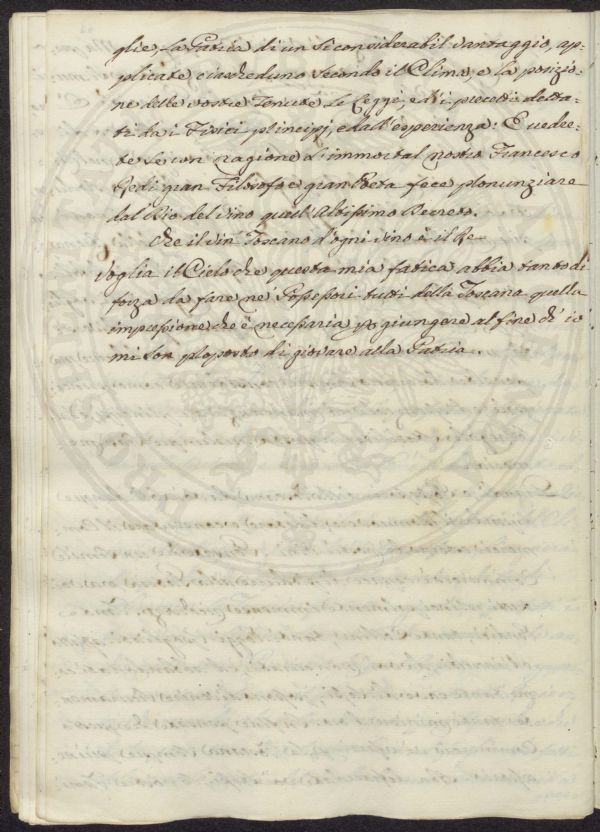 glie, la Patria di un sì considerabil vantaggio, ap-
plicate ciascheduno secondo il Clima, e la posizio-
ne delle vostre Tenute le Leggi, ed i precetti detta-
ti da i Fisici principj, e dall'esperienza: E vedre-
te se con ragione l'immortal nostro Francesco
Redi gran Filosofo e gran Poeta fece pronunziare
dal Dio del vino quell'Altissimo Decreto.
Che il vin Toscano d'ogni vino è il Re
Voglia il Cielo che questa mia fatica abbia tanto di
forza da fare ne' Possessori tutti della Toscana quella
impressione che è necessaria per giungere al fine ch' io
mi son proposto di giovare alla Patria.